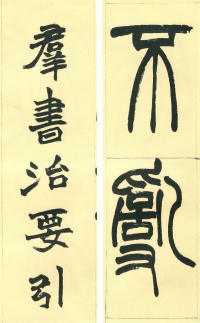 不亂
羣書治要引